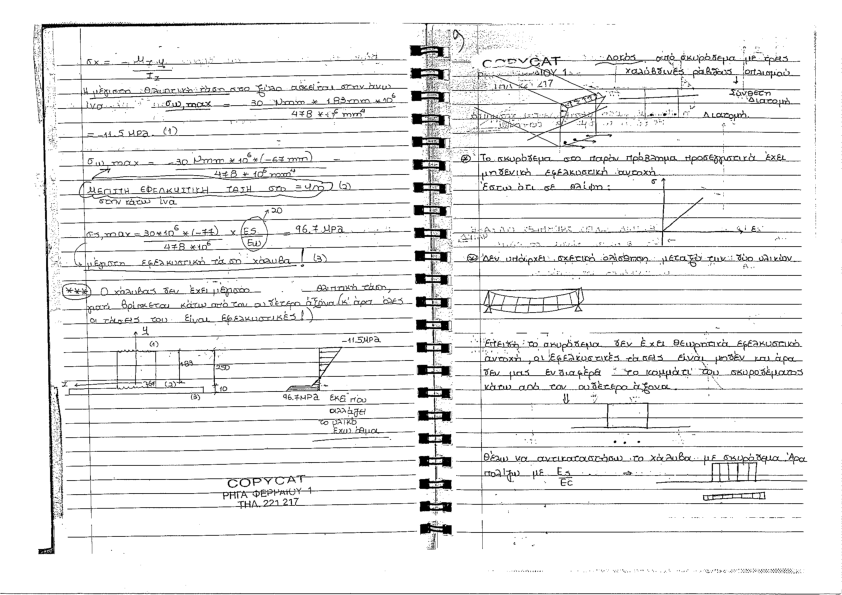 σx = - Mz y
Iz
Η μέγιστη θλιπτική τάση στο ξύλο ασκείται στην άνω
ίνα σω,max = 30 Nmm * 183mm *10⁶
478 *10⁶ mm⁴
= -11.5 MPa (1)
σω,max = -30 Nmm *10⁶ *(-67 mm)
478 * 10⁶ mm⁴
ΜΕΓΙΣΤΗ ΕΦΕΛΚΥΣΤΙΚΗ ΤΑΣΗ στο (2)
στην κάτω ίνα
20
σs,max = 30*10⁶ *(-77) x Es = 96.7 MPa
478 *10⁶ Eω
μέγιστη εφελκυστική τάση χάλυβα! (3)
*** Ο χάλυβας δεν έχει μέγιστη θλιπτική τάση,
γιατί βρίσκεται κάτω από τον ουδέτερο άξονα (κ' άρα όλες
οι τάσεις του είναι εφελκυστικές!)
y
(1)
183
250
z
(2)
10
(3)
-11.5MPa
96.7MPa
εκεί που
αλλάζει
το υλικό
έχω άλμα.
COPYCAT
ΡΗΓΑ ΦΕΡΡΑΙΟΥ 1
ΤΗΛ. 221.217
9
COPYCAT
ΑΙΟΥ 1
217
Δοκός από σκυρόδεμα με τρεις
χαλύβδινες ράβδους οπλισμού
Σύνθεση
Διατομή
Διατομή
* Το σκυρόδεμα στο παρόν πρόβλημα προσεγγιστικά έχει
μηδενική εφελκυστική αντοχή
Έστω ότι σε θλίψη:
σ
ε
* Δεν υπάρχει σχετική ολίσθηση μεταξύ των δύο υλικών.
Επειδή το σκυρόδεμα δεν έχει θεωρητικά εφελκυστική
αντοχή, οι εφελκυστικές τάσεις είναι μηδέν και άρα
δεν μας ενδιαφέρει το κομμάτι του σκυροδέματος
κάτω από τον ουδέτερο άξονα.
⇓
Θέλω να αντικαταστήσω το χάλυβα με σκυρόδεμα. Άρα
πολ/ζω με Es ⇒
Ec